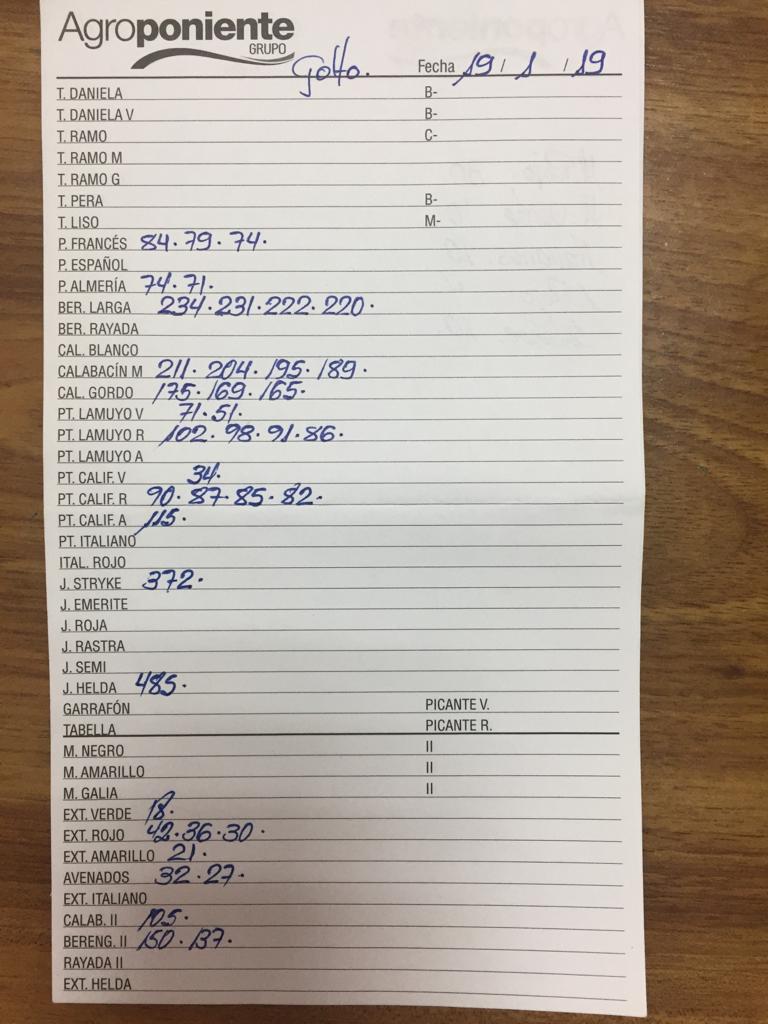 Agroponiente
GRUPO
Golfo. Fecha 19 / 1 / 19
T. DANIELA B-
T. DANIELA V B-
T. RAMO C-
T. RAMO M
T. RAMO G
T. PERA B-
T. LISO M-
P. FRANCÉS 84. 79. 74.
P. ESPAÑOL
P. ALMERÍA 74. 71.
BER. LARGA 234. 231. 222. 220.
BER. RAYADA
CAL. BLANCO
CALABACÍN M 211. 204. 195. 189.
CAL. GORDO 175. 169. 165.
PT. LAMUYO V 71. 51.
PT. LAMUYO R 102. 98. 91. 86.
PT. LAMUYO A
PT. CALIF. V 34.
PT. CALIF. R 90. 87. 85. 82.
PT. CALIF. A 115.
PT. ITALIANO
ITAL. ROJO
J. STRYKE 372.
J. EMERITE
J. ROJA
J. RASTRA
J. SEMI
J. HELDA 485.
GARRAFÓN PICANTE V.
TABELLA PICANTE R.
M. NEGRO II
M. AMARILLO II
M. GALIA II
EXT. VERDE 18.
EXT. ROJO 42. 36. 30.
EXT. AMARILLO 21.
AVENADOS 32. 27.
EXT. ITALIANO
CALAB. II 105.
BERENG. II 150. 137.
RAYADA II
EXT. HELDA